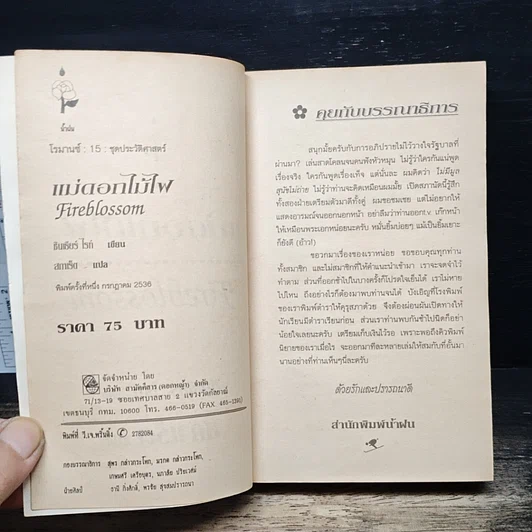 น้ำฝน
โรมานซ์ : 15 : ชุดประวัติศาสตร์
แม่ดอกไม้ไฟ
Fireblossom
ซินเธียร์ ไรท์ เขียน
สการ์เร็ต แปล
พิมพ์ครั้งที่หนึ่ง กรกฎาคม 2536
ราคา 75 บาท
จัดจำหน่าย โดย
บริษัท สามัคคีสาร (ดอกหญ้า) จำกัด
71/13-19 ซอยเทศบาลสาย 2 แขวงวัดกัลยาณ์
เขตธนบุรี กทม. 10600 โทร. 466-0519 (FAX 465-2281)
พิมพ์ที่ ว.เจ.พริ้นติ้ง ✆ 2782084
กองบรรณาธิการ สุพร กล่าวกระโทก, มรกต กล่าวกระโทก,
เกษมศรี เตรียบุตร, นภาลัย ปริยเวศม์
ฝ่ายศิลป์ ธานี กิ่งศักดิ์, พรชัย สุขสมปรารถนา
คุยกับบรรณาธิการ
สนุกมั้ยครับกับการอภิปรายไม่ไว้วางใจรัฐบาลที่
ผ่านมา? เล่นสาดโคลนจนคนฟังหัวหมุน ไม่รู้ว่าใครกันแน่พูด
เรื่องจริง ใครกันพูดเรื่องเท็จ แต่นั่นละ ผมคิดว่า ไม่มีมูล
สุนัขไม่ถ่าย ไม่รู้ว่าท่านจะคิดเหมือนผมมั้ย เปิดสภานัดนี้รู้สึก
ทั้งสองฝ่ายเตรียมตัวมาดีทั้งคู่ ผมขอชมเชย แต่ไม่อยากให้
แสดงอารมณ์จนออกนอกหน้า อย่าลืมว่าท่านออกt.v. เก๊กหน้า
ให้เหมือนพระเอกหน่อยนะครับ หมั่นยิ้มบ่อยๆ แม้เป็นยิ้มเยาะ
ก็ยังดี (อ้าว!)
ขอวกมาเรื่องของเราหน่อย ขอขอบคุณทุกท่าน
ทั้งสมาชิก และไม่สมาชิกที่ให้คำแนะนำเข้ามา เราจะจดจำไว้
ทำตาม ส่วนที่ออกช้าไปในบางครั้งก็โปรดใจเย็นได้ เราไม่หาย
ไปไหน ถึงอย่างไรก็ต้องมาพบท่านจนได้ บังเอิญที่โรงพิมพ์
ของเราพิมพ์ตำราให้คุรุสภาด้วย จึงต้องผ่อนผันเปิดทางให้
นักเรียนมีตำราเรียนก่อน ส่วนเราท่านพบกันช้าไปนิดก็อย่า
น้อยใจเลยนะครับ เตรียมเก็บเงินไว้รอ เพราะพอถึงคิวพิมพ์
นิยายของเราเมื่อไร จะออกมาทีละหลายเล่มให้สมกับที่อั้นมา
นานอย่างที่ท่านเห็นๆนี่ละครับ
ด้วยรักและปรารถนาดี
สำนักพิมพ์น้ำฝน